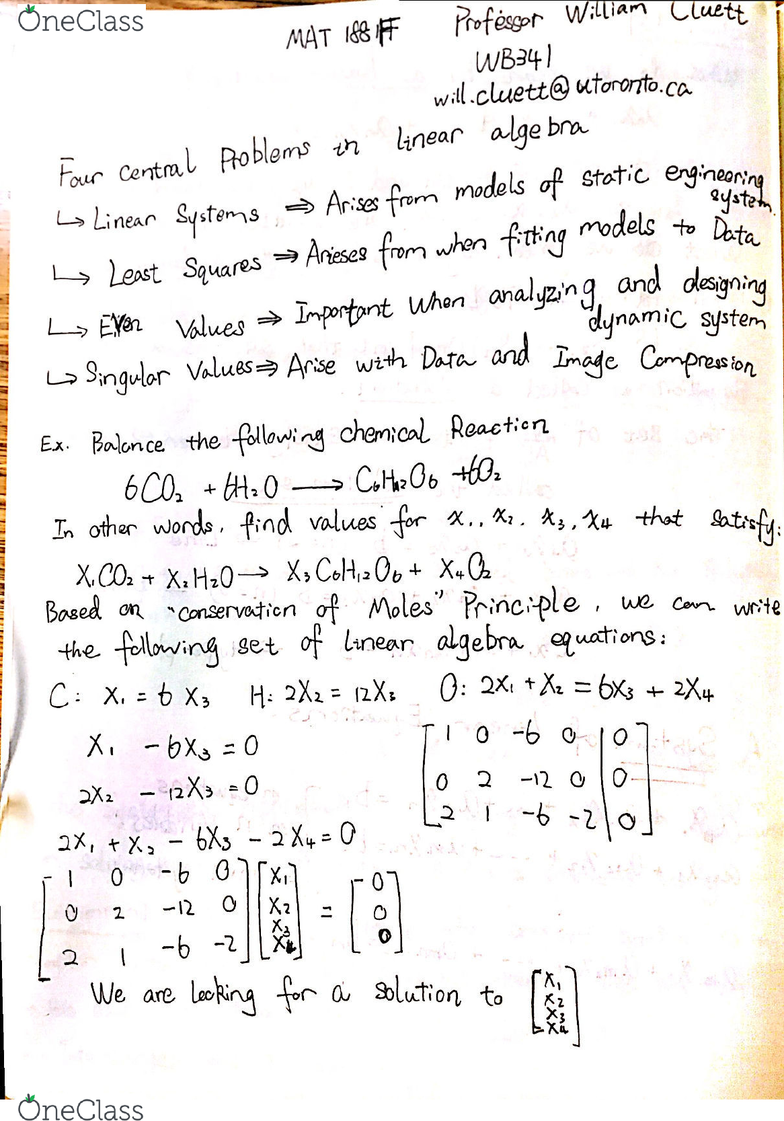 OneClass
MAT 188 1F Professor William Cluett
WB341
will.cluett@utoronto.ca
Four central Problems in linear algebra
↳ Linear Systems ⇒ Arises from models of static engineering
system
↳ Least Squares ⇒ Arieses from when fitting models to Data
↳ Values ⇒ Important When analyzing and designing
dynamic system
↳ Singular Values ⇒ Arise with Data and Image Compression
Ex. Balance the following chemical Reaction
6CO₂ + 6H₂O → C₆H₁₂O₆ + 6O₂
In other words, find values for x₁, x₂, x₃, x₄ that satisfy:
X₁CO₂ + X₂H₂O → X₃C₆H₁₂O₆ + X₄O₂
Based on "conservation of Moles" Principle, we can write
the following set of linear algebra equations:
C: X₁ = 6X₃ H: 2X₂ = 12X₃ O: 2X₁ + X₂ = 6X₃ + 2X₄
X₁ - 6X₃ = 0
2X₂ - 12X₃ = 0
2X₁ + X₂ - 6X₃ - 2X₄ = 0
[1 0 -6 0 | 0]
[0 2 -12 0 | 0]
[2 1 -6 -2 | 0]
[1 0 -6 0] [X₁] [0]
[0 2 -12 0] [X₂] = [0]
[2 1 -6 -2] [X₃ X₄] [0]
We are looking for a solution to [X₁ X₂ X₃ X₄]
OneClass